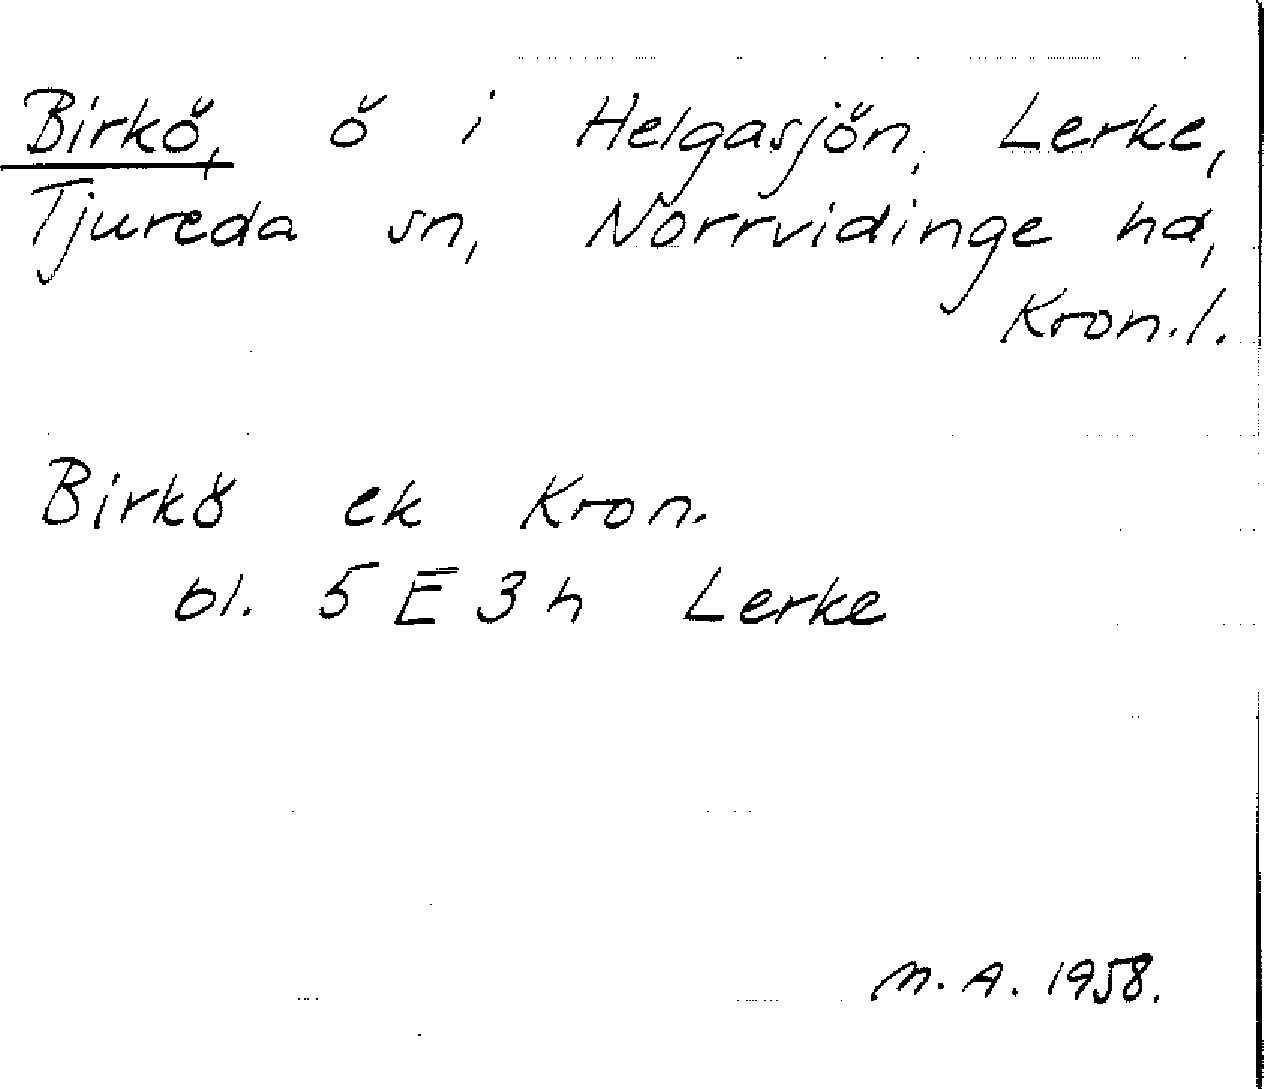 Birkö, ö i Helgasjön, Lerke,
Tjureda sn, Norrvidinge hd,
Kron.l.
Birkö ek Kron.
bl. 5 E 3 h Lerke
M. A. 1958.